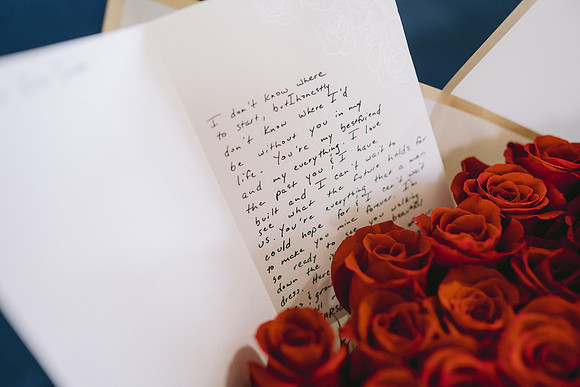 I don't know where
to start, but I honestly
don't know where I'd
be without you in my
life. You're my bestfriend
and my everything. I love
the past you & I have
built and I can't wait to
see what the future holds for
us. You're everything that a man
could hope for & I can't wait
to make you mine forever. I'm
so ready to see you walking
down the beautiful
dress. Here